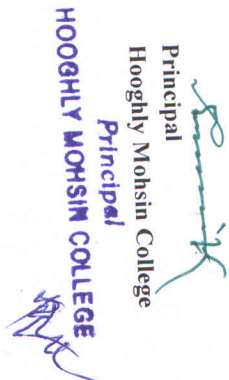 Principal
Hooghly Mohsin College
Principal
HOOGHLY MOHSIN COLLEGE